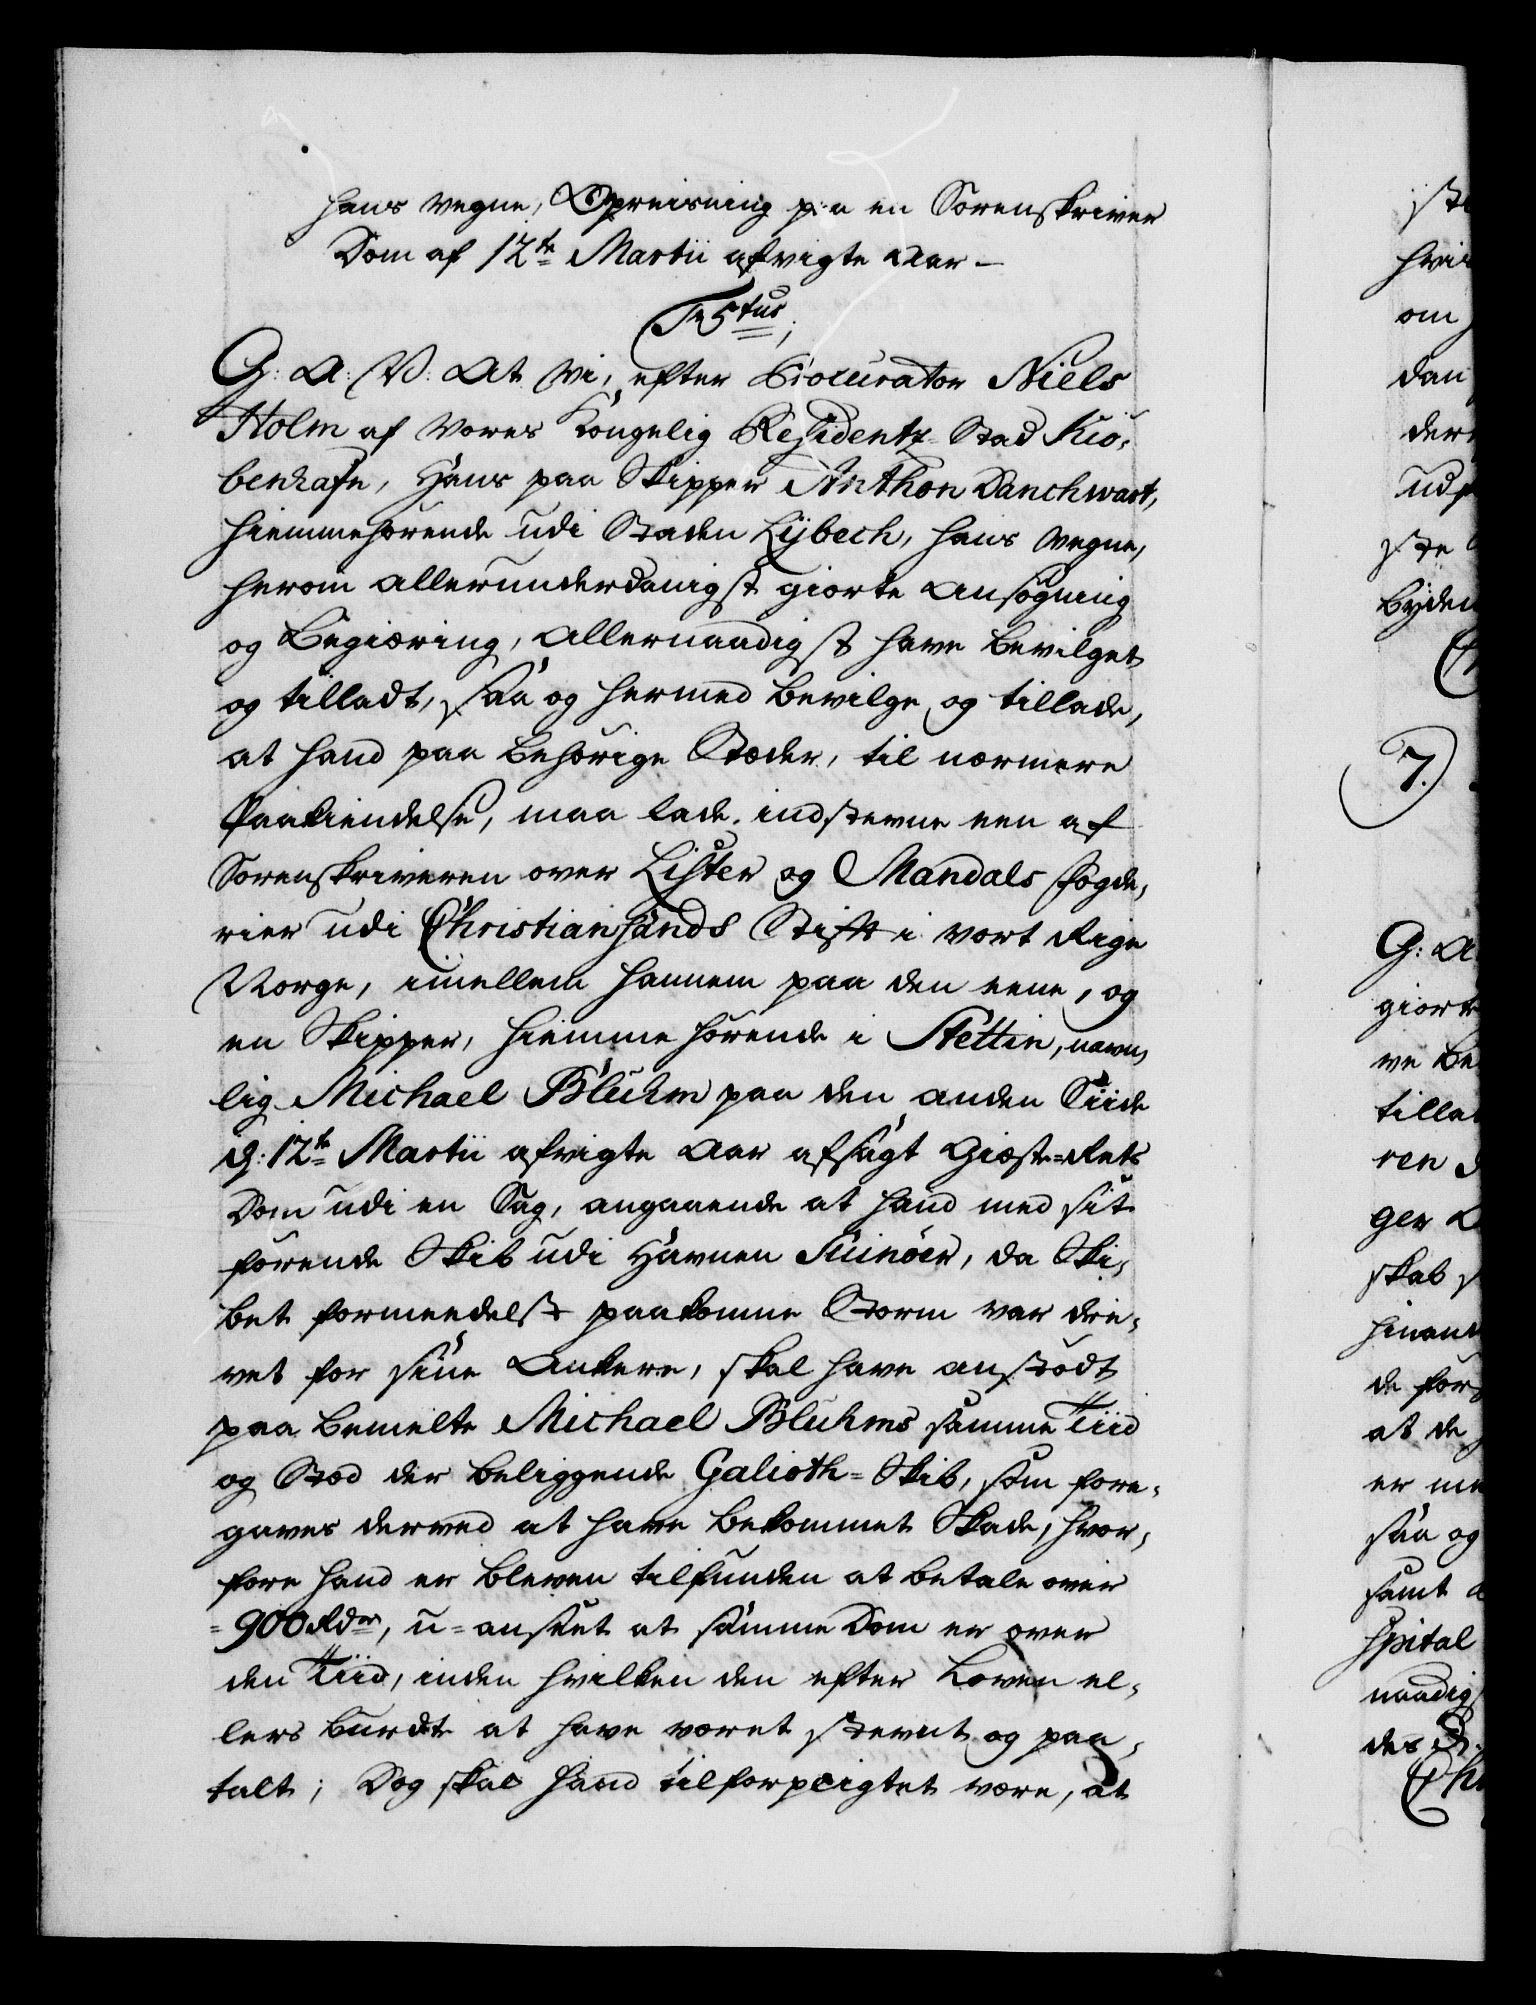 hans vegne, Opreisning paa en Sorenskriver
Dom af 12te Martii afvigte Aar –
Textus,
G: A: V: At Vi, efter Procurator Niels
Holm af Vores Kongelig Residentz-Stad Kiö,
benhafn, Hans paa Skipper Anthon Danchwart,
hiemmehörende udi Staden Lÿbech, hans vegne,
herom allerunderdanigst giorte Ansögning
og Begiæring, allernaadigst have bevilget
og tilladt, saa og hermed bevilge og tillade,
at hand paa behörige Stæder, til nærmere
Paakiendelse, maa lade indstevne een af
Sorenskriveren over Lister og Mandals Fogde,
rier udi Christiansands Stift i vort Rige
Norge, imellem hannem paa den eene, og
en Skipper, hiemme hörende i Stettin, navn,
lig Michael Bluhm paa den anden Siide
d: 12te Martii afvigte Aar afsagt Giæste-Rets
Dom udi en Sag, angaaende at hand med sit
förende Skib udi Havnen Svinöer, da Ski,
bet formeedelst paakomne Storm var dre,
vet for sine Ankere, skal have anstödt
paa bemelte Michael Bluhms samme Tiid
og Stæd der beliggende Galioth-Skib, som fore,
gaves derved at have bekommet Skade, hvor,
fore hand er bleven tilfunden at betale over
=900 Rdr, u=anseet at samme Dom er over
den Tiid, inden hvilken den efter Loven el,
lers burdt at have været stevnt og paa,
talt; Dog skal hand tilforpligtet være, at
ste
hvis
om
dan
der
udi
ste
byden
7.)
G: A
giort
ve be
tillad
ren
ger
skab
hinand
de for
at de
er me
saa og
samt
hpital
naadigs
des
Ch